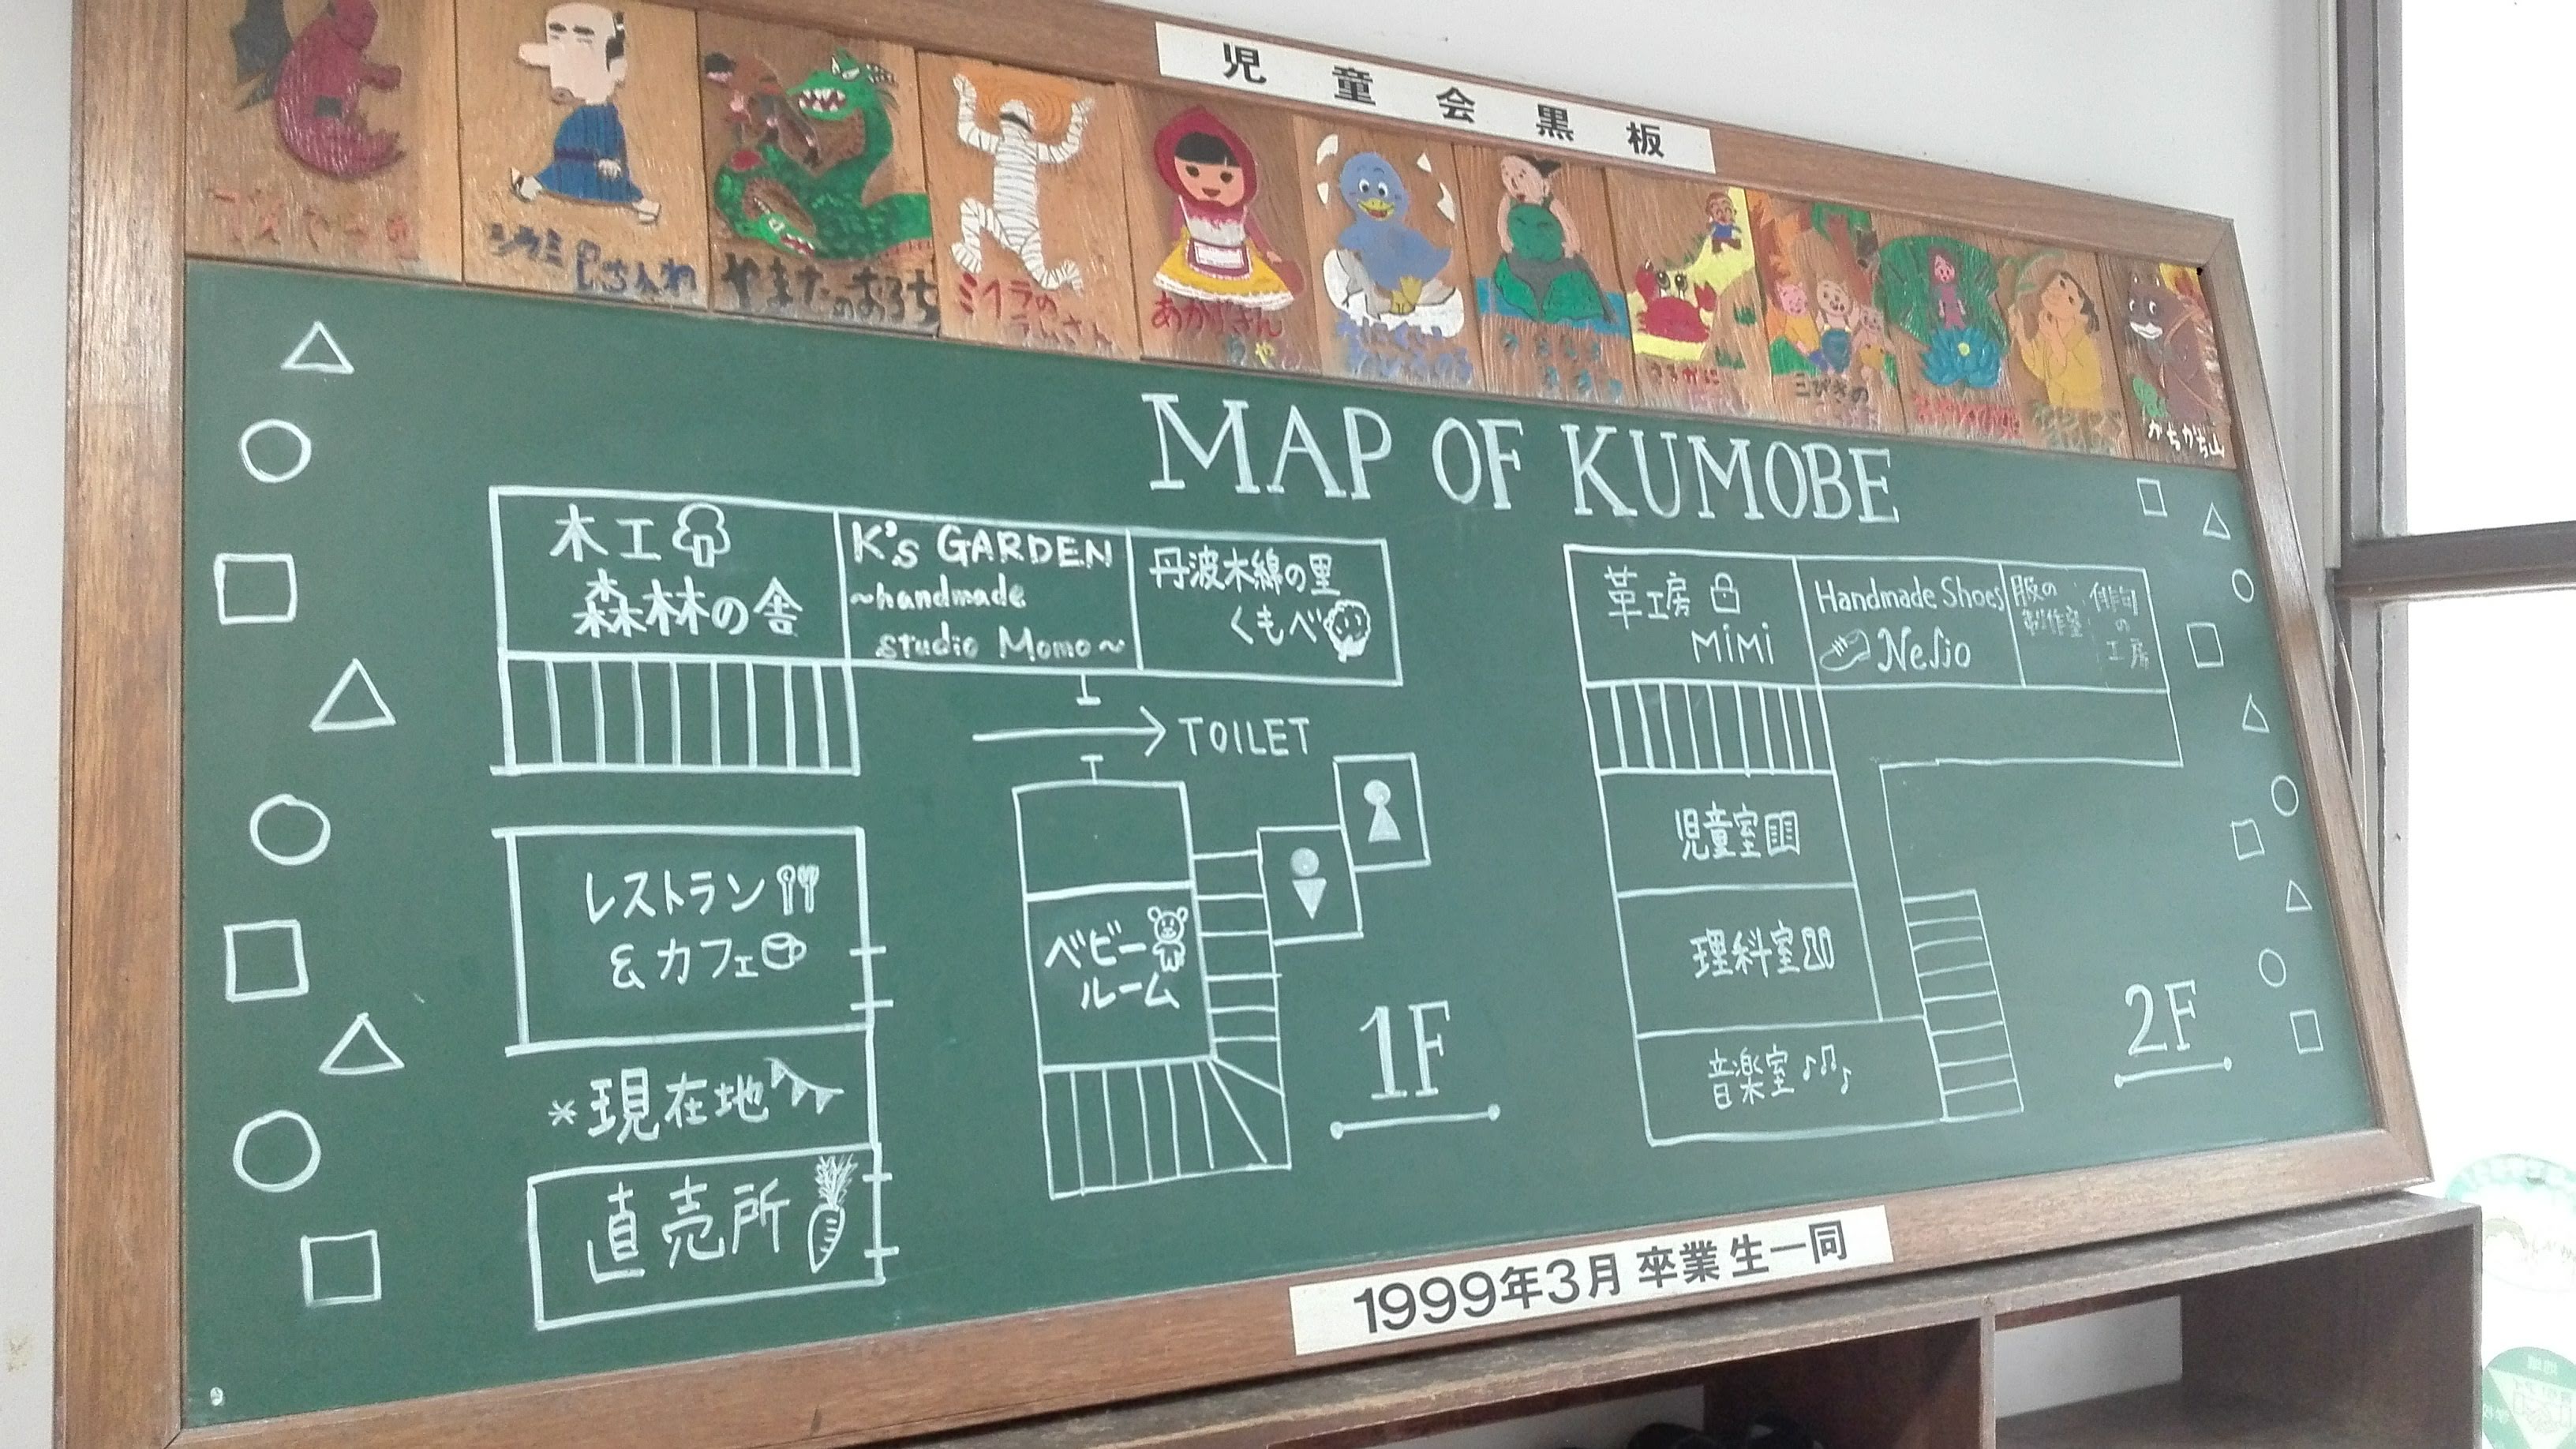 児童会黒板
やまたのおろち
ミイラの
あかずきん
ちゃん
さるかに
三びきの
かちかち山
MAP OF KUMOBE
木工
森林の舎
K's GARDEN
~handmade
studio Momo~
丹波木綿の里
くもべ
TOILET
レストラン
&カフェ
ベビー
ルーム
*現在地
直売所
1F
革工房
MiMi
Handmade Shoes
Nelio
服の
製作室
俳句
の
工房
児童室
理科室
音楽室
2F
1999年3月 卒業生一同